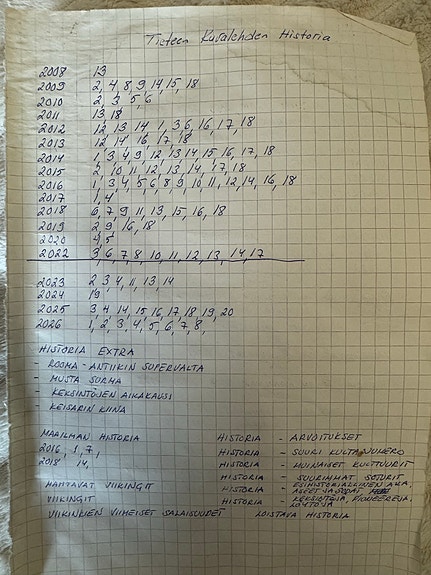 Tieteen Kuvalehden Historia
2008 13
2009 2, 4, 8, 9, 14, 15, 18
2010 2, 3, 5, 6
2011 13, 18
2012 12, 13, 14, 1, 3, 6, 16, 17, 18
2013 12, 14, 16, 17, 18
2014 1, 3, 4, 9, 12, 13, 14, 15, 16, 17, 18
2015 2, 10, 11, 12, 13, 14, 17, 18
2016 1, 3, 4, 5, 6, 8, 9, 10, 11, 12, 14, 16, 18
2017 1, 4
2018 6, 7, 9, 11, 13, 15, 16, 18
2019 2, 9, 16, 18
2020 4, 5
2022 3, 6, 7, 8, 10, 11, 12, 13, 14, 17
2023 2, 3, 4, 11, 13, 14
2024 19
2025 3, 4, 14, 15, 16, 17, 18, 19, 20
2026 1, 2, 3, 4, 5, 6, 7, 8,
HISTORIA EXTRA
- ROOMA - ANTIIKIN SUPERVALTA
- MUSTA SURMA
- KEKSINTÖJEN AIKAKAUSI
- KEISARIN KIINA
MAAILMAN HISTORIA
2016, 1, 7,
2018 14,
MAHTAVAT VIIKINGIT
VIIKINGIT
VIIKINKIEN VIIMEISET SALAISUUDET
HISTORIA - ARVOITUKSET
HISTORIA - SUURI KULTANUMERO
HISTORIA - MUINAISET KULTTUURIT
HISTORIA - SUURIMMAT SOTURIT
HISTORIA - ESIHISTORIALLINEN AIKA,
ASEET JA SODAT
HISTORIA - KEKSIJÖITÄ, PIONEEREJA,
LÖYTÖJÄ
LOISTAVA HISTORIA